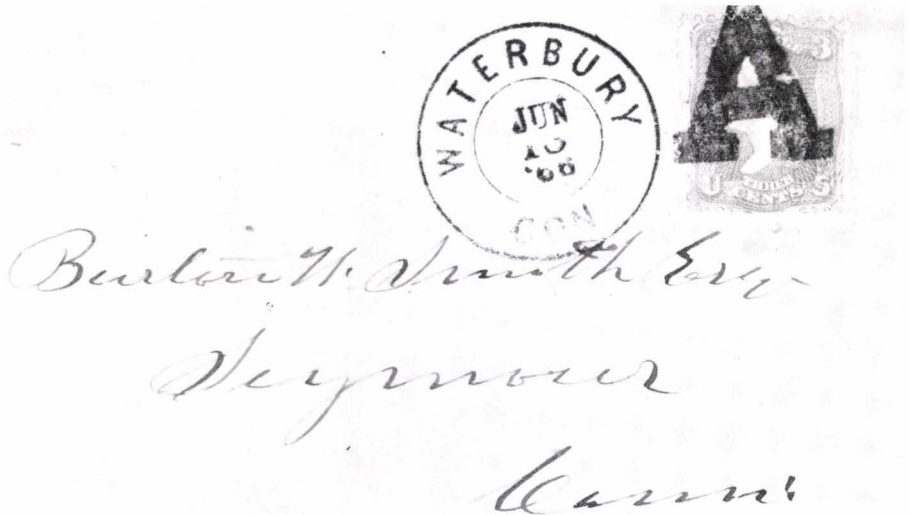 WATERBURY
JUN
'66
CON
A
3
U S
THREE
CENTS
Burton W. Smith Esq.
Seymour
Conn: